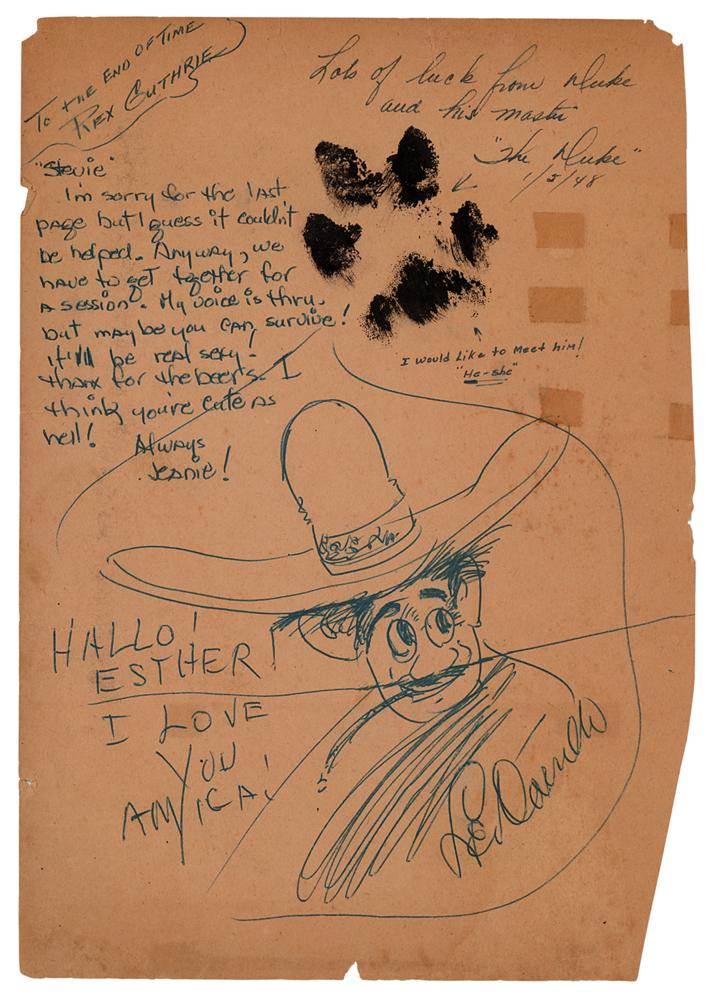 To the END OF TIME
REX GUTHRIE
Lots of luck from Duke
and his master
"The Duke"
1/5/48
"Stevie"
I'm sorry for the last
page but I guess it couldn't
be helped. Anyway, we
have to get together for
a session. My voice is thru.
but maybe you can survive!
it'll be real sexy.
thanx for the beers. I
think you're cute as
hell!
Always
Jeanie!
I would like to meet him!
"He-she"
HALLO!
ESTHER!
I LOVE
YOU
AMIGA!